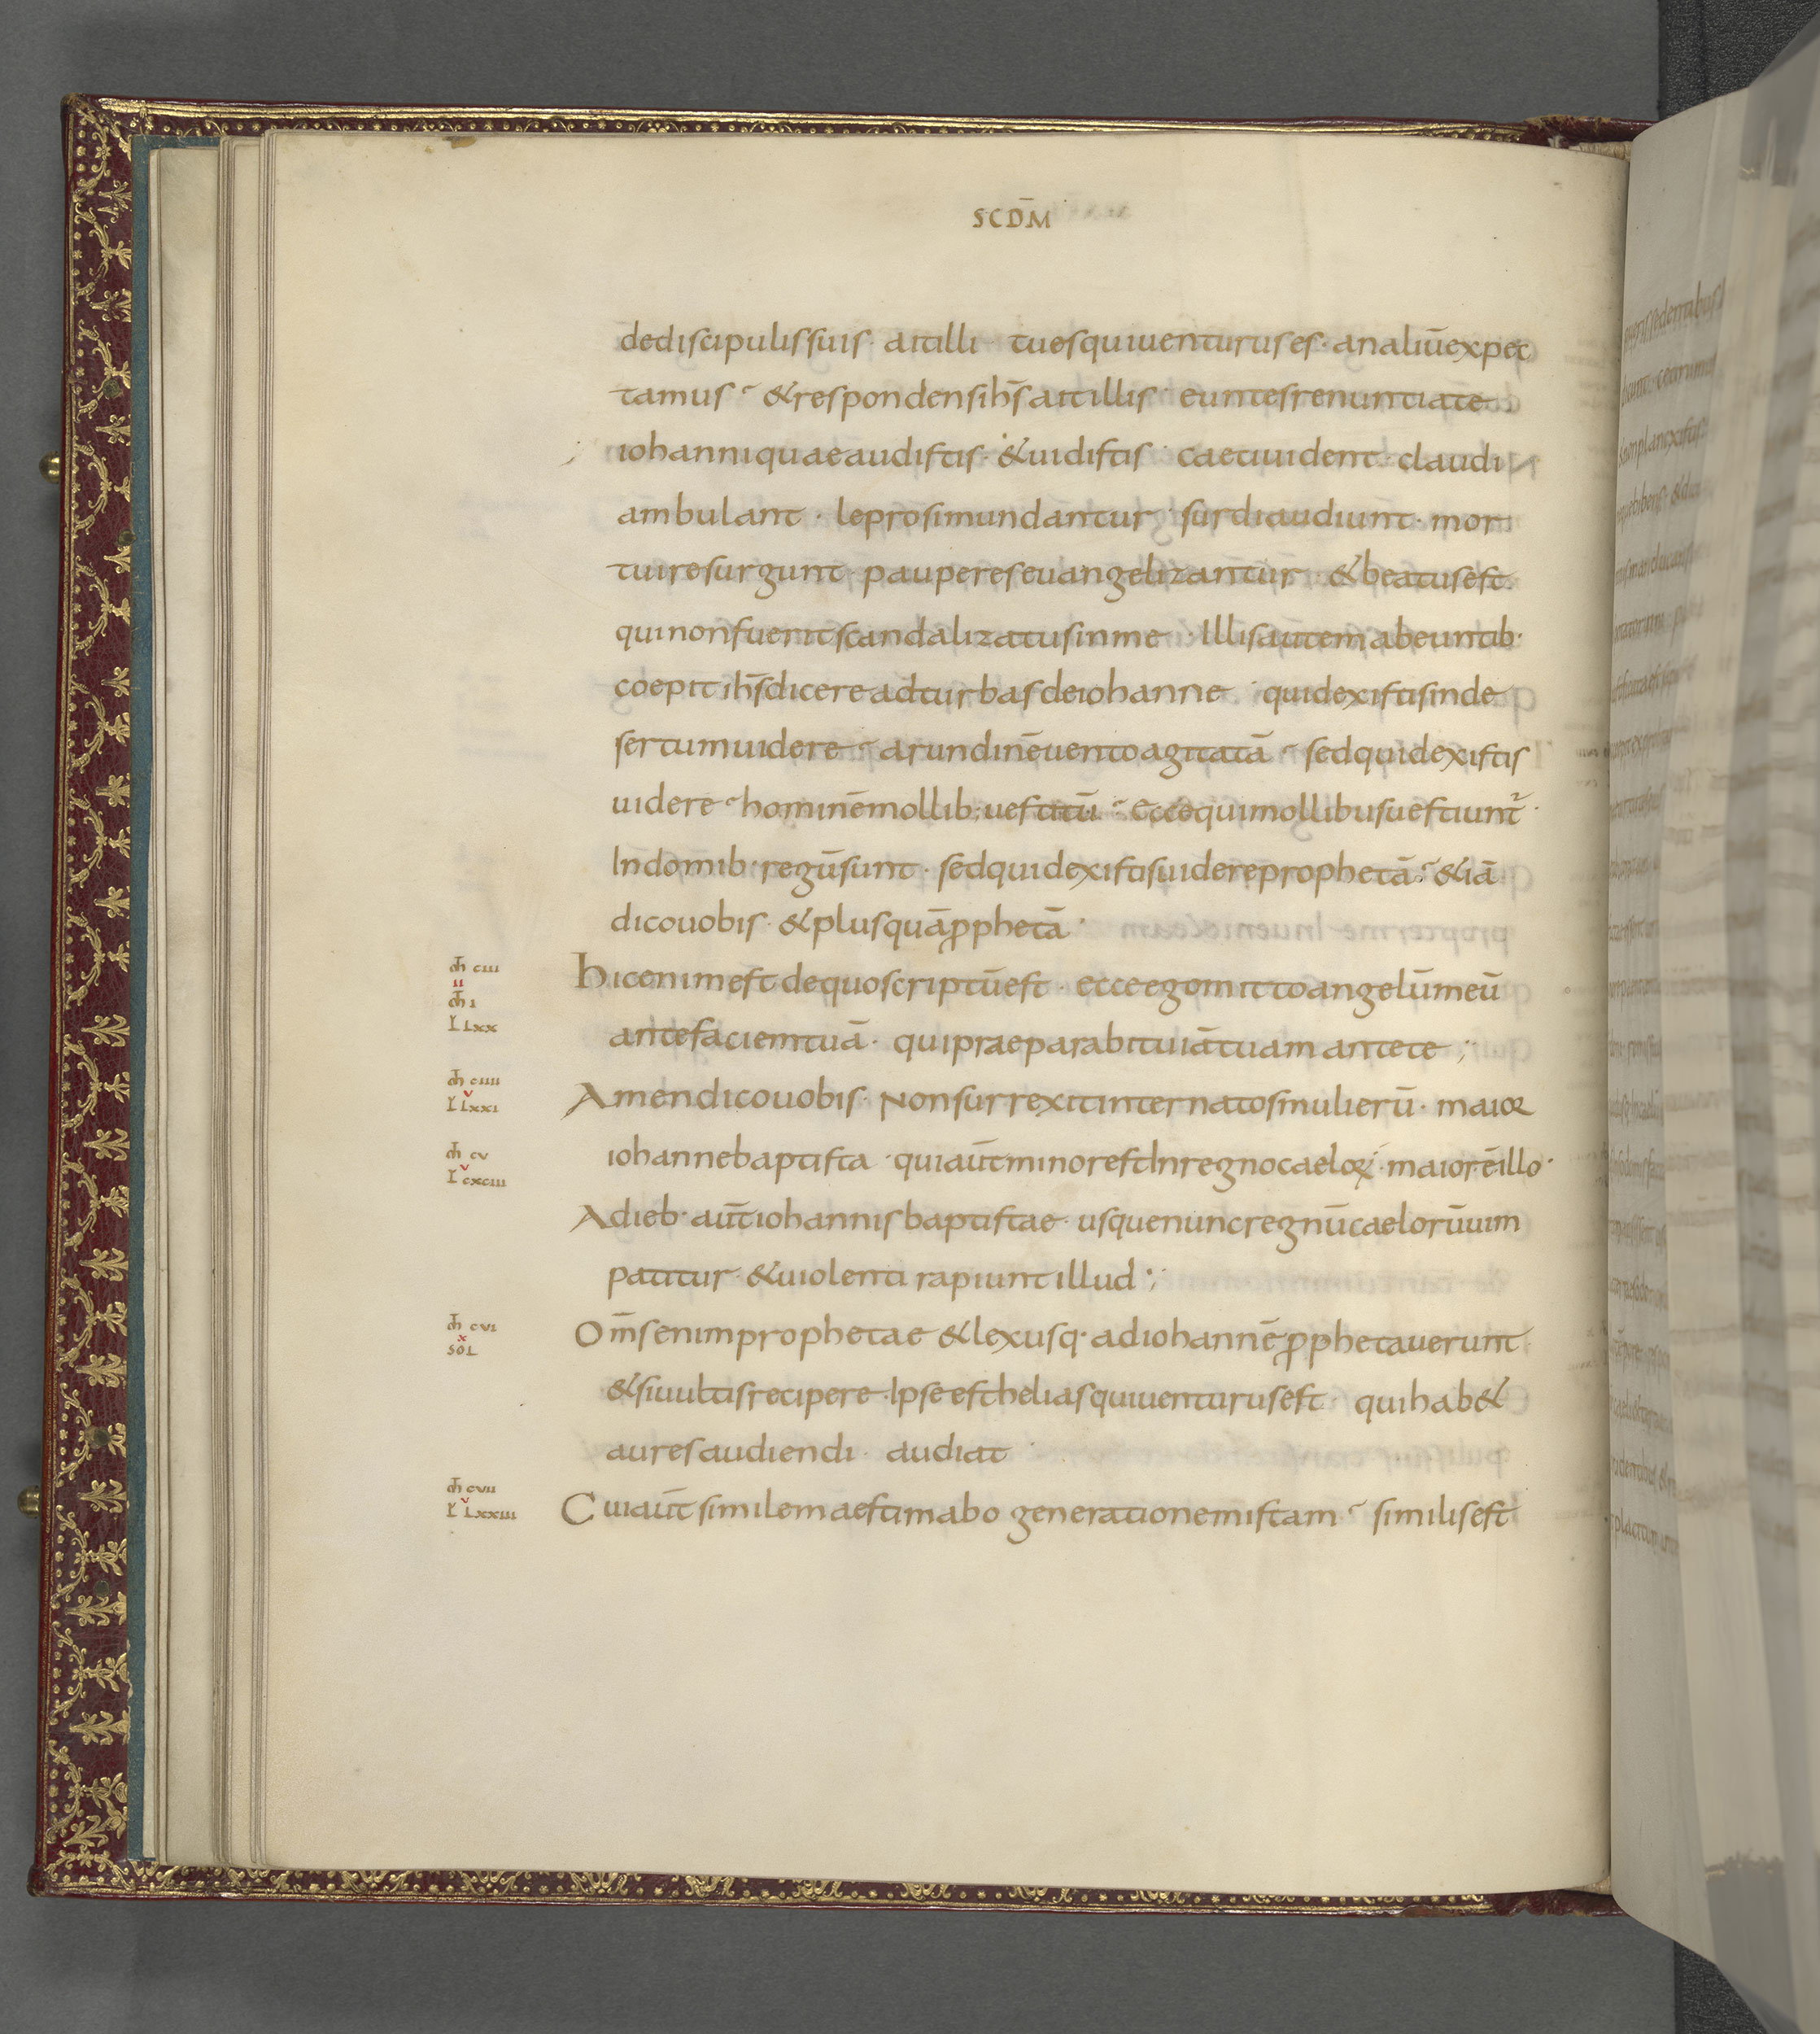 SCDM̄
dediscipulissuis· aitilli· tuesquiuenturuses· analiūexpec
tamus· &respondensih̄saitillis· euntesrenuntiate
iohanniquaeaudistis· &uidistis· caeciuident· claudi
ambulant· leprosimundantur· surdiaudiunt· mor
tuiresurgunt· pauperesevangelizantur· &beatusest
quinonfueritscandalizatusinme· Illisautemabeuntib·
coepitih̄sdicereadturbasdeiohanne· quidexistisinde
sertumuidere· arundinēuentoagitatā· sedquidexistis
uidere· hominēmollib;uestitū· Eccequimollibusuestiunt̄·
Indomib·regūsunt· sedquidexistisuidereprophetā· &iā
dicouobis· &plusquāꝓphetā·
m̄ CIII
II
m̄ I
L LXX
Hicenimestdequoscriptūest· ecceegomittoangelūmeū
antefaciemtuā· quipraeparabituiātuamantete;
m̄ CIIII
V
L LXXI
Amendicouobis· Nonsurrexitinternatosmulierū· maior
m̄ CV
V
L CXCIII
iohannebaptista· quiaūtminorestInregnocaeloꝝ· maiorēillo·
Adieb·aūtiohannisbaptistae· usquenuncregnūcaelorūuim
patitur· &uiolentirapiuntillud;
m̄ CVI
X
SOL
Om̄senimprophetae &lexusq·adiohannēꝓphetauerunt
&siuultisrecipere·Ipseestheliasquiuenturusest· quihab&
auresaudiendi· audiat·
m̄ CVII
V
L LXXIII
Cuiaūtsimilemaestimabo generationemistam· similisest